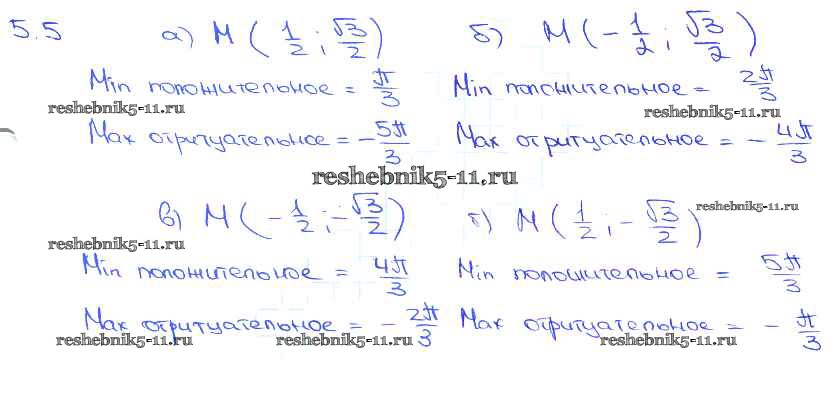 5.5 а) M (1/2; √3/2) б) M (-1/2; √3/2)
Min положительное = π/3 Min положительное = 2π/3
reshebnik5-11.ru reshebnik5-11.ru
Max отрицательное = -5π/3 Max отрицательное = -4π/3
reshebnik5-11.ru
в) M (-1/2; -√3/2) г) M (1/2; -√3/2) reshebnik5-11.ru
reshebnik5-11.ru
Min положительное = 4π/3 Min положительное = 5π/3
Max отрицательное = -2π/3 Max отрицательное = -π/3
reshebnik5-11.ru reshebnik5-11.ru reshebnik5-11.ru